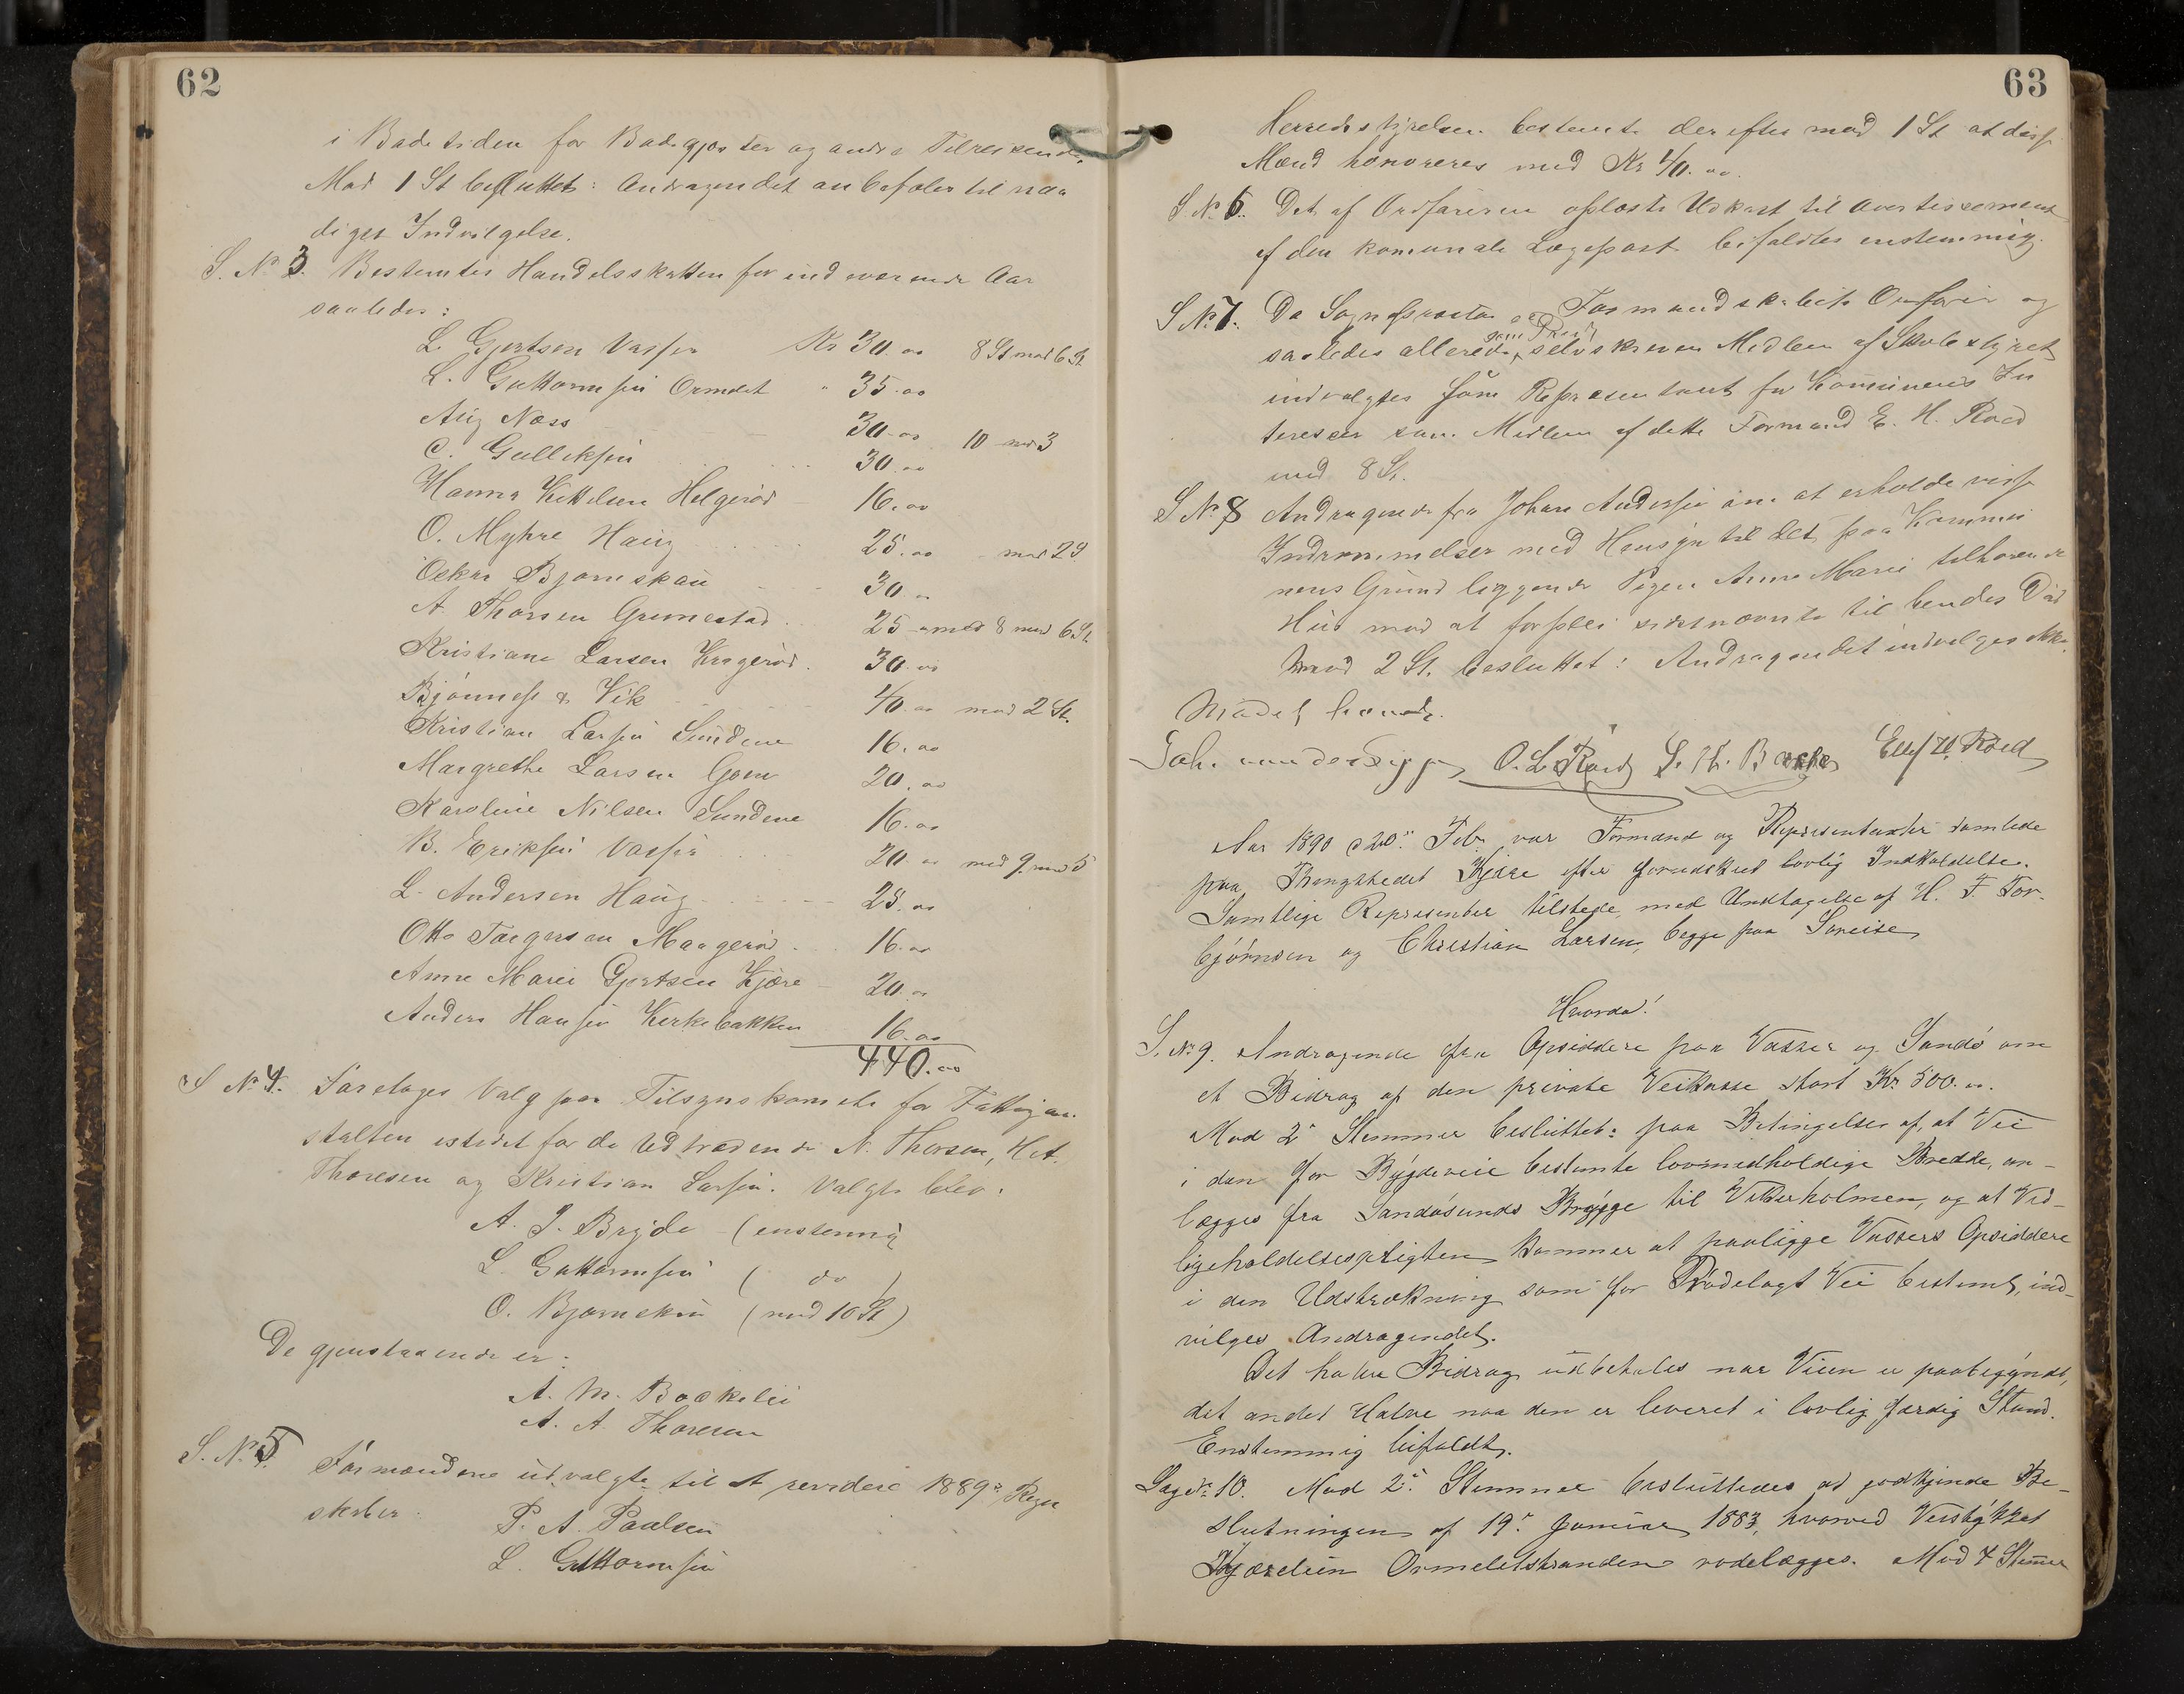 62
i Badetiden for Badegjæster og andre Tilreisende.
Mod 1 St besluttet: Andragendet anbefales til naa
digst Indvilgelse.
S. No 3. Bestemtes Handelsskatten for indeværende Aar
saaledes:
L. Gjertsen Vasser Kr 30.00 8 St mod 6 St
L. Guttormsen Ormelet " 35.00
Aug Næss 30.00 10 mod 3
C. Gulliksen 30.00
Hanna Kittelsen Helgerød 16.00
O. Myhre Haug 25.00 mod 2 S
Oskar Bjørnskau 30.00
A. Thorsen Grimestad 25 med 8 mod 6 St.
Kristiane Larsen Krøgerød 30.00
Bjønness & Vik 40.00 mod 2 St.
Kristian Larsen Sundene 16.00
Margrethe Larsen Gjom 20.00
Karoline Nilsen Sundene 16.00
B. Eriksen Vasser 20.00 med 9 mod 5
L. Andersen Haug 25.00
Otto Torgersen Maagerø 16.00
Anne Marie Gjertsen Kjære 20.00
Anders Hansen Kirkebakken 16.00
440.00
S No 4. Foretages Valg paa Tilsynskomite for Fattigan
stalten istedet for de Udtrædende N. Thorsen, H. A.
Thoresen og Kristian Larsen. Valgte blev:
A. J. Bryde (enstemmig
L. Guttormsen ( do )
O. Bjørnskau (med 10 St)
De gjenstaaende er:
A. M. Bækelie
A. A. Thoresen
S. No 5. Formændene udvalgte til at revidere 1889s Regn
skaber.
P. A. Paulsen
L. Guttormsen
63
Herredsstyrelsen bestemte derefter mod 1 St at disse
Mænd honoreres med Kr 40.00.
S. No 6. Det af Ordføreren oplæste Udkast til Avertissement
af den komunale Lægepost bifaldtes enstemmig.
S No 7. Da Sognepræsten er Formandskabets Ordfører og
saaledes allerede som Præst selvskreven Medlem af Skolestyret
indvalgtes som Repræsentant for Kommunens In
teresser som Medlem af dette Formand E. H. Røed
med 8 St.
S No 8 Andragende fra Johan Andersen om at erholde visse
Indrømmelser med Hensyn til det paa Kommu
nens Grund liggende Pigen Anne Marie tilhørende
Hus mod at forpleie sidstnævnte til hendes Død
Mod 2 St. besluttet: Andragendet indvilges ikke.
Mødet hævet.
Joh. van der Lippe O. L. Røed S. Th. Bakke Ellef H. Røed
Aar 1890 d 20de Feb. var Formænd og Representanter samlede
paa Thingstedet Kjære efter forudskeet lovlig Indkaldelse.
Samtlige Represent[er] tilstede, med Undtagelse af H. F. Tor-
bjørnsen og Christian Larsen, begge paa Soreise
Hvorda!
S. No 9. Andragende fra Opsiddere paa Vasser og Sandø om
et Bidrag af den private Veikasse stort Kr. 500.00.
Mod 2 Stemmer besluttet: paa Betingelse af, at Vei
i den for Bygdeveie bestemte lovmedholdige Bredde, an-
lægges fra Sandøsunds Brygge til Vikerholmen, og at Ved-
ligeholdelsespligten kommer at paaligge Vassers Opsiddere
i den Udstrækning som for Rodelagt Vei bestemt, ind-
vilges Andragendet.
Det halve Bidrag udbetales naar Veien er paabegyndt,
det andet Halve naar den er leveret i lovlig færdig Stand.
Enstemmig bifaldt.
Sag No 10. Mod 2 Stemmer besluttedes at godkjende Be-
slutningen af 19de Januar 1883, hvorved Veistykket
Kjærelien Ormeletstranden rodelægges. Mod 4 Stemmer